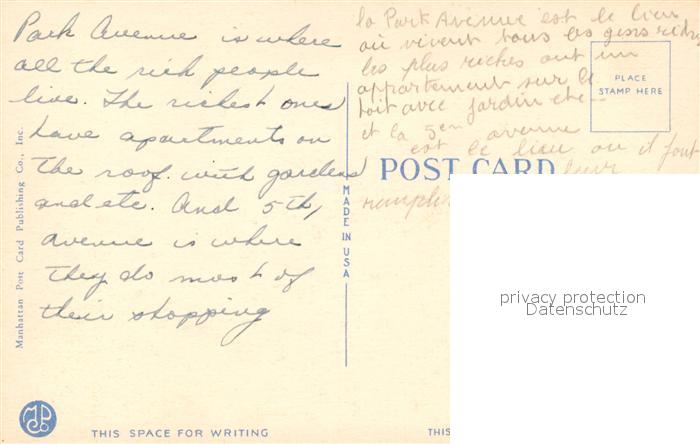 Park Avenue is where
all the rich people
live. The richest ones
have apartments on
the roof with gardens
and etc. And 5th,
avenue is where
they do most of
their shopping
la Park Avenue est le lieu
où vivent tous les gens riches
les plus riches ont un
appartement sur le
toit avec jardin etc--
et la 5em avenue
est le lieu où il font
leur
PLACE
STAMP HERE
POST CARD
MADE IN USA
Manhattan Post Card Publishing Co., Inc.
privacy protection
Datenschutz
MPCo
THIS SPACE FOR WRITING
THIS